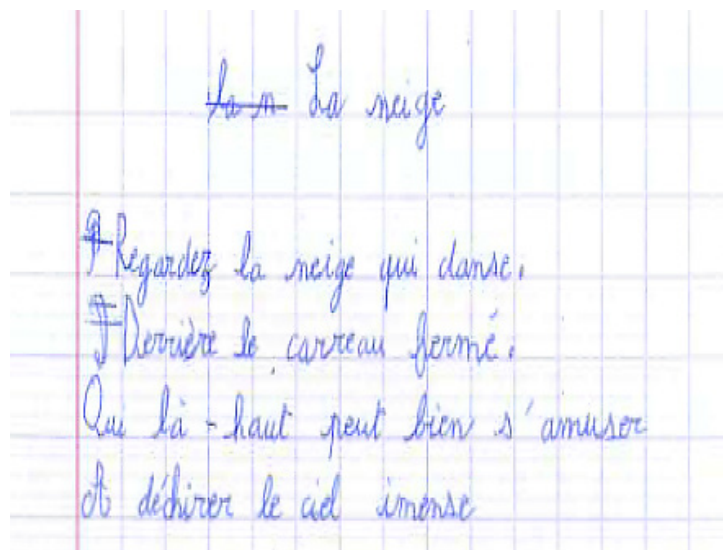 La n La neige
Regardez la neige qui danse.
Derrière le carreau fermé.
Qui là-haut peut bien s'amuser
A déchirer le ciel imense